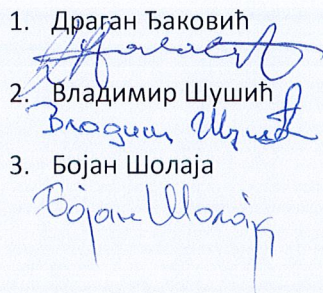 1. Драган Ђаковић
2. Владимир Шушић
Владимир Шушић
3. Бојан Шолаја
Бојан Шолаја